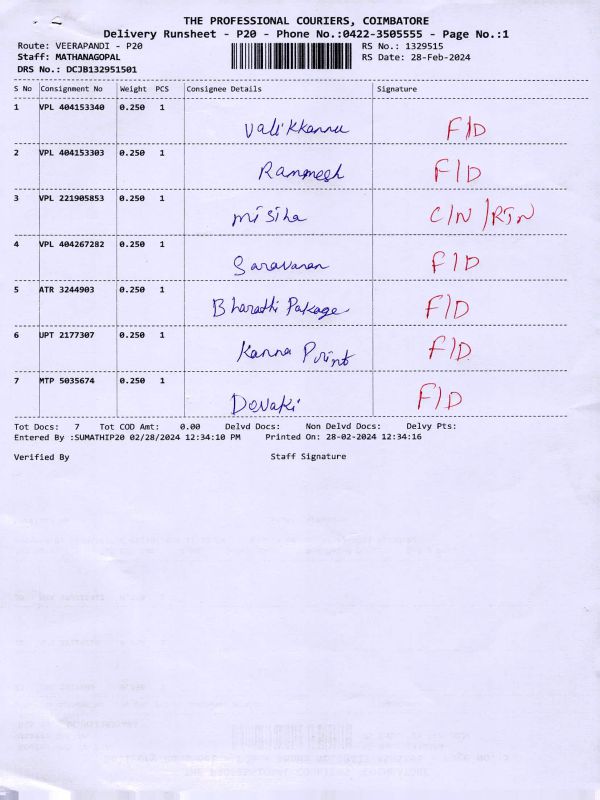 THE PROFESSIONAL COURIERS, COIMBATORE
Delivery Runsheet - P20 - Phone No.:0422-3505555 - Page No.:1
Route: VEERAPANDI - P20 RS No.: 1329515
Staff: MATHANAGOPAL RS Date: 28-Feb-2024
DRS No.: DCJB132951501
S No Consignment No Weight PCS Consignee Details Signature
1 VPL 404153340 0.250 1
Valikkannu F/D
2 VPL 404153303 0.250 1
Rammesh F/D
3 VPL 221905853 0.250 1
misiha C/N /RTN
4 VPL 404267282 0.250 1
Saravanan F/D
5 ATR 3244903 0.250 1
Bharathi Pakage F/D
6 UPT 2177307 0.250 1
Kanna Print F/D
7 MTP 5035674 0.250 1
Devaki F/D
Tot Docs: 7 Tot COD Amt: 0.00 Delvd Docs: Non Delvd Docs: Delvy Pts:
Entered By :SUMATHIP20 02/28/2024 12:34:10 PM Printed On: 28-02-2024 12:34:16
Verified By Staff Signature